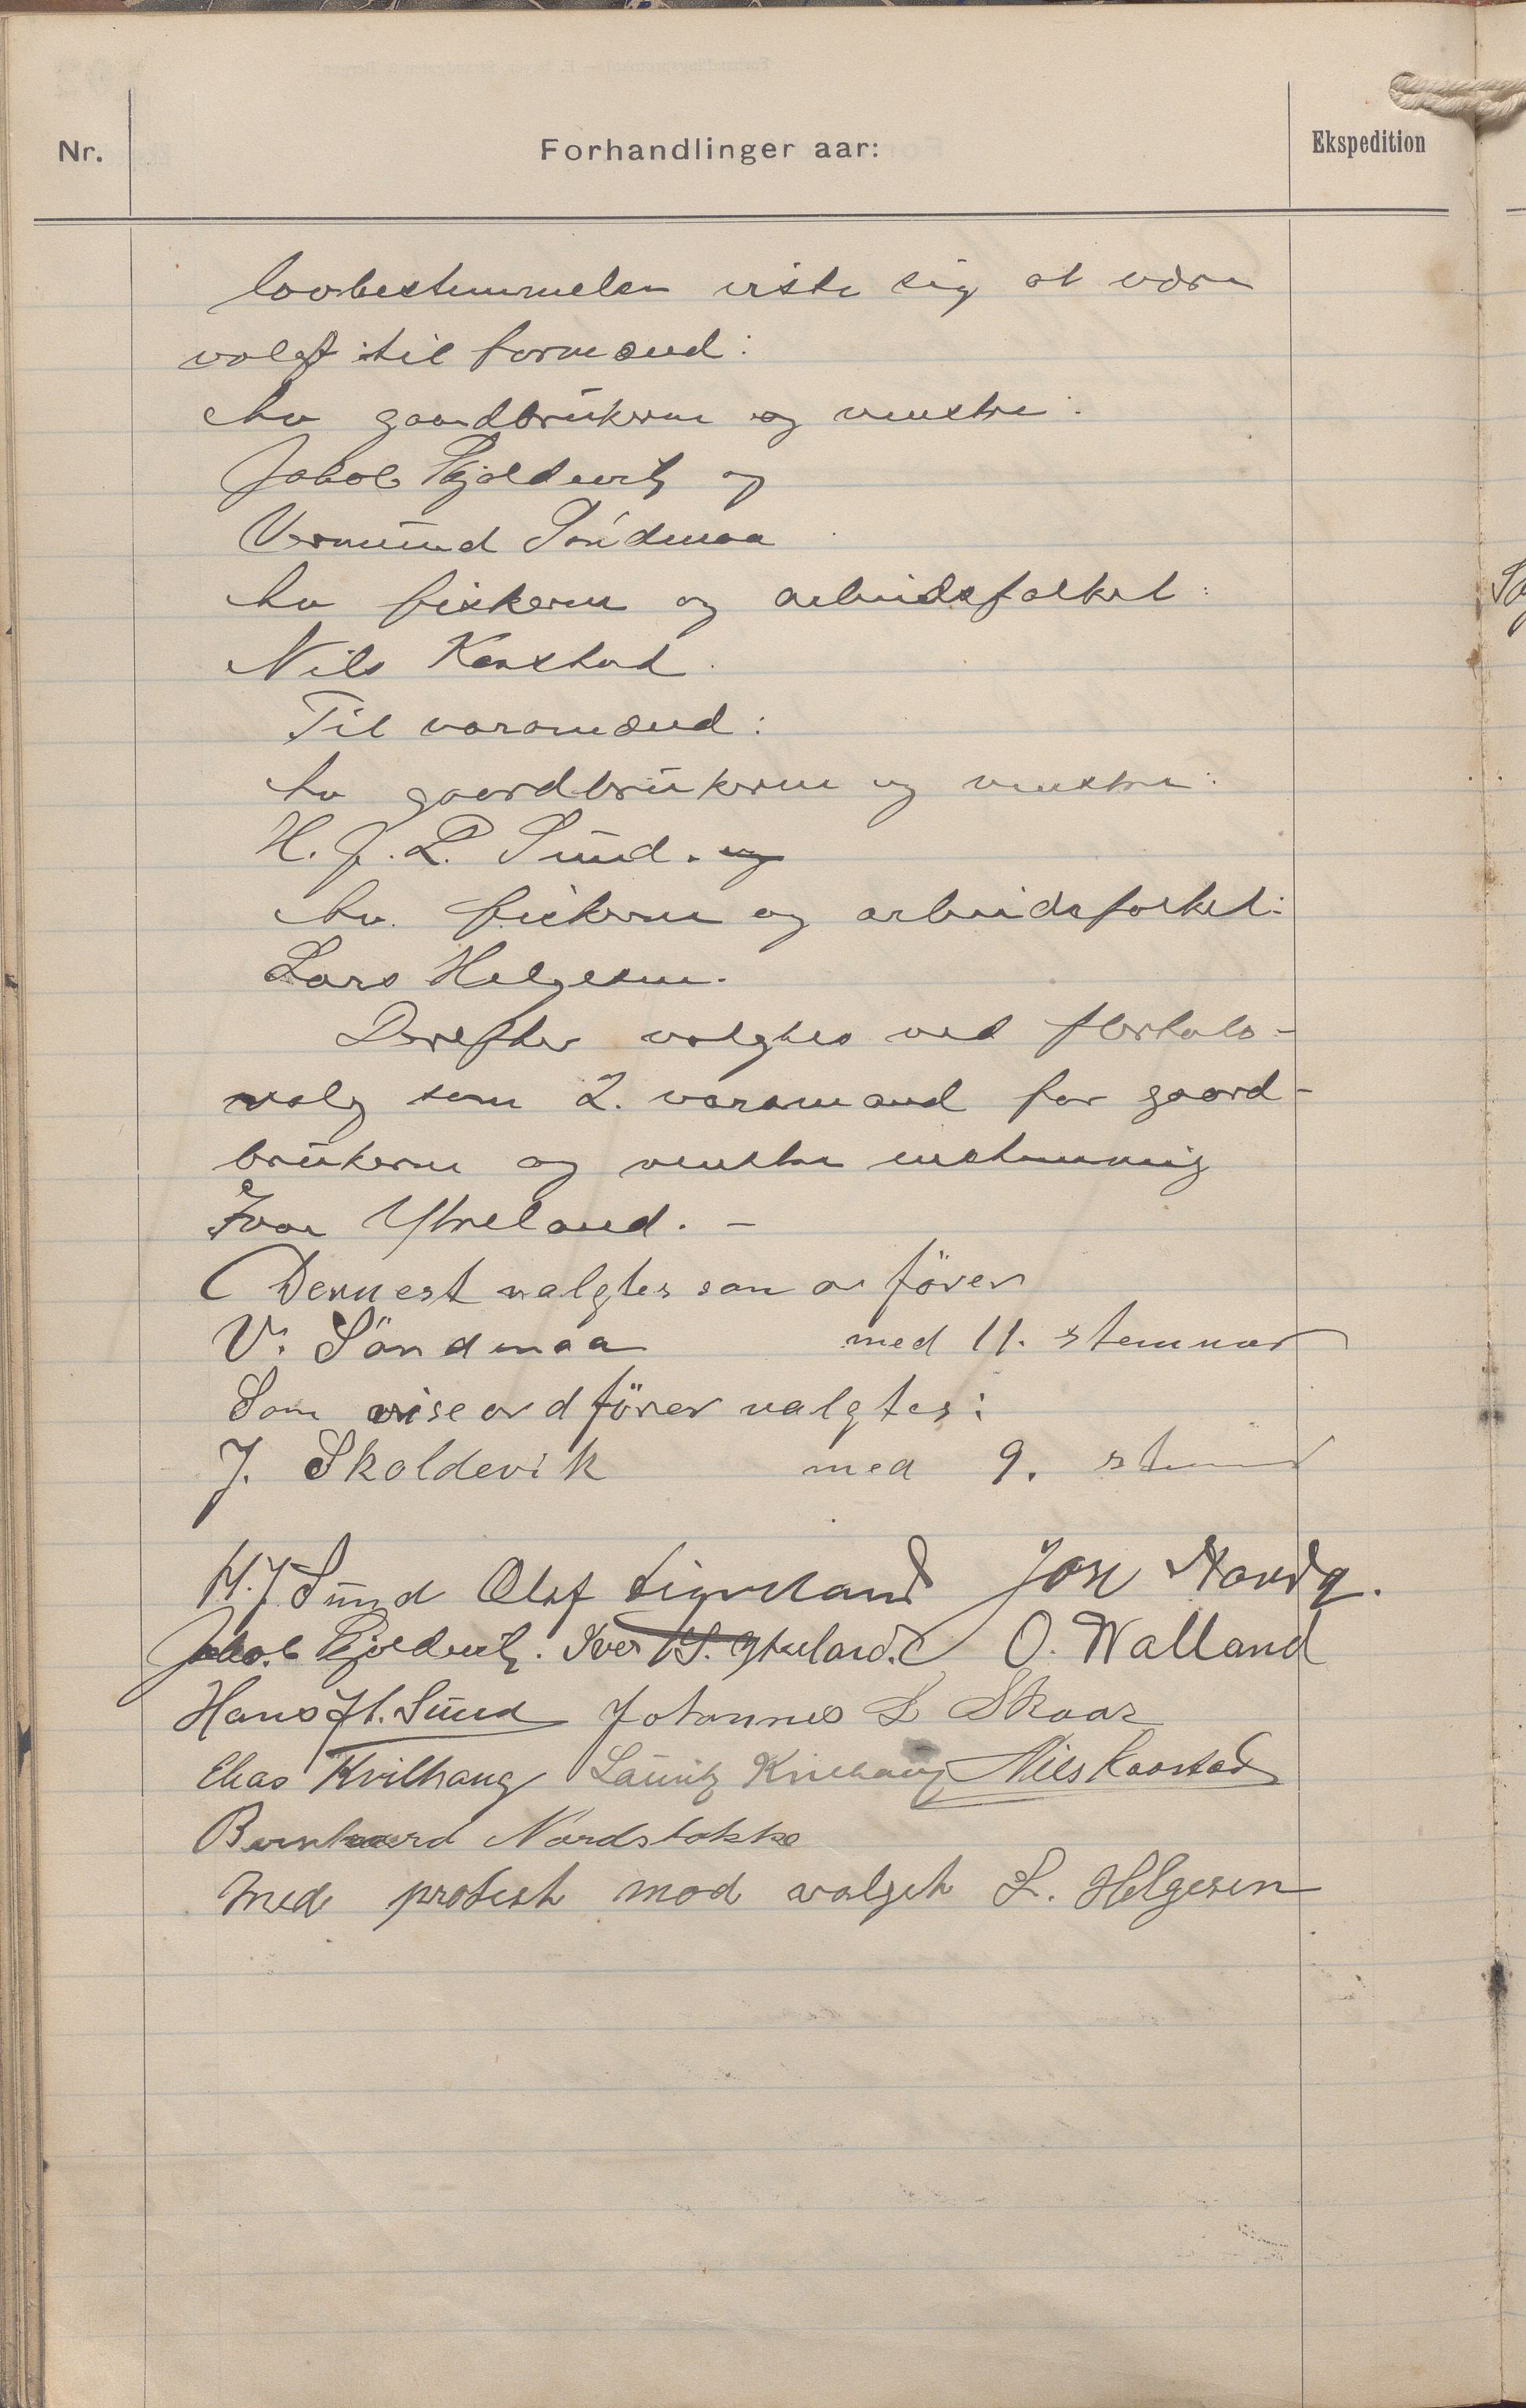 Nr.
Forhandlinger aar:
Ekspedition
lovbestemmelsen viste sig at være
valgt til formænd:
Av gaardbrukerne og venstre:
Jakob Skjoldevik og
Vermund Söndmaa
Av fiskerne og arbeidsfolket:
Nils Kaastad.
Til varamænd:
Av gaardbrukerne og venstre:
H. J. L. Sund. og
Av fiskerne og arbeidsfolket:
Lars Helgesen.
Derefter valgtes ved flertals-
valg som 2. varamand for gaard-
brukerne og venstre enstemmig
Ivar Ytreland. -
Dernest valgtes som or förer
V. Söndmaa med 11. stemmer
Som viseordförer valgtes:
J. Skoldevik med 9. stemmer
H. J Sund Olaf
Jakob Skjoldevik. Iver S. Ytreland. O. Walland
Hans H. Sund Johannes L Skaar
Elias Kvilhaug Lauritz Kvilhaug Nils Kaastad
Bernhard Nordstokke
Med protest mod valget L. Helgesen